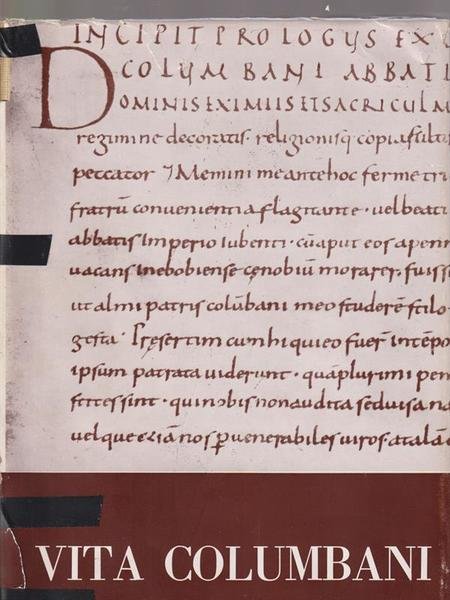 INCIPIT PROLOGUS EX
COLUMBANI ABBATI
DOMINIS EXIMIIS ET SACRI CULM
regimine decoratis · religionisq; copia fultis
peccator IMemini me ante hoc ferme tri
fratrū convenientia flagitante · vel beati
abbatis Imperio Iubenti · cū aput eos apenn
uacans Inebobiense cenobiū morarer · fuiss
ut almi patris colūbani meo studerē stilo
gesta · Presertim cum hi qui eo fuer̄ intēpo
ipsum patrata uiderunt · quāplurimi pen
 · qui nobis non audita sed uisa na
vel que etiā nos p uenerabiles uiros · atalā
VITA COLUMBANI